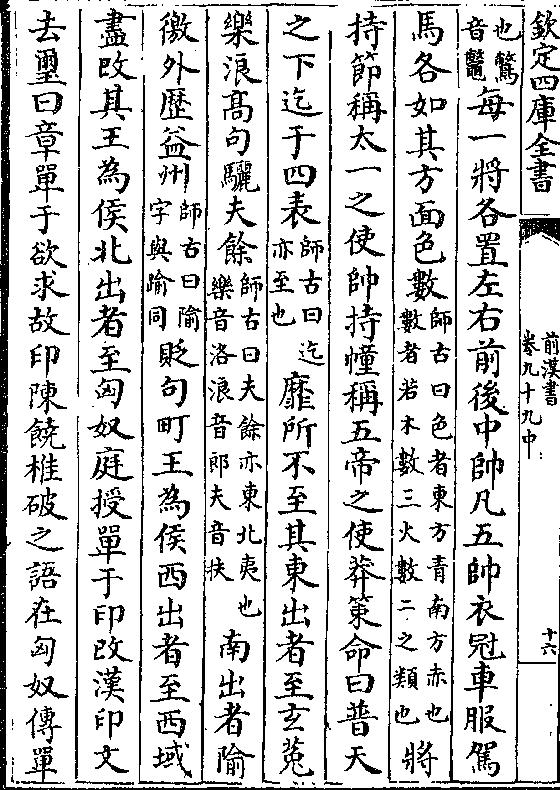 欽定四庫全書
前漢書
卷九十九中
十六
也鷩
音鼈每一將各置左右前後中帥凡五帥衣冠車服駕
馬各如其方面色數師古曰色者東方青南方赤也
數者若木數三火數二之類也將
持節稱太一之使帥持幢稱五帝之使莽策命曰普天
之下迄于四表師古曰迄
亦至也靡所不至其東出者至玄菟
樂浪高句驪夫餘師古曰夫餘亦東北夷也
樂音洛浪音郎夫音扶南出者隃
徼外歷益州師古曰隃
字與踰同貶句町王為侯西出者至西域
盡改其王為侯北出者至匈奴庭授單于印改漢印文
去璽曰章單于欲求故印陳饒椎破之語在匈奴傳單